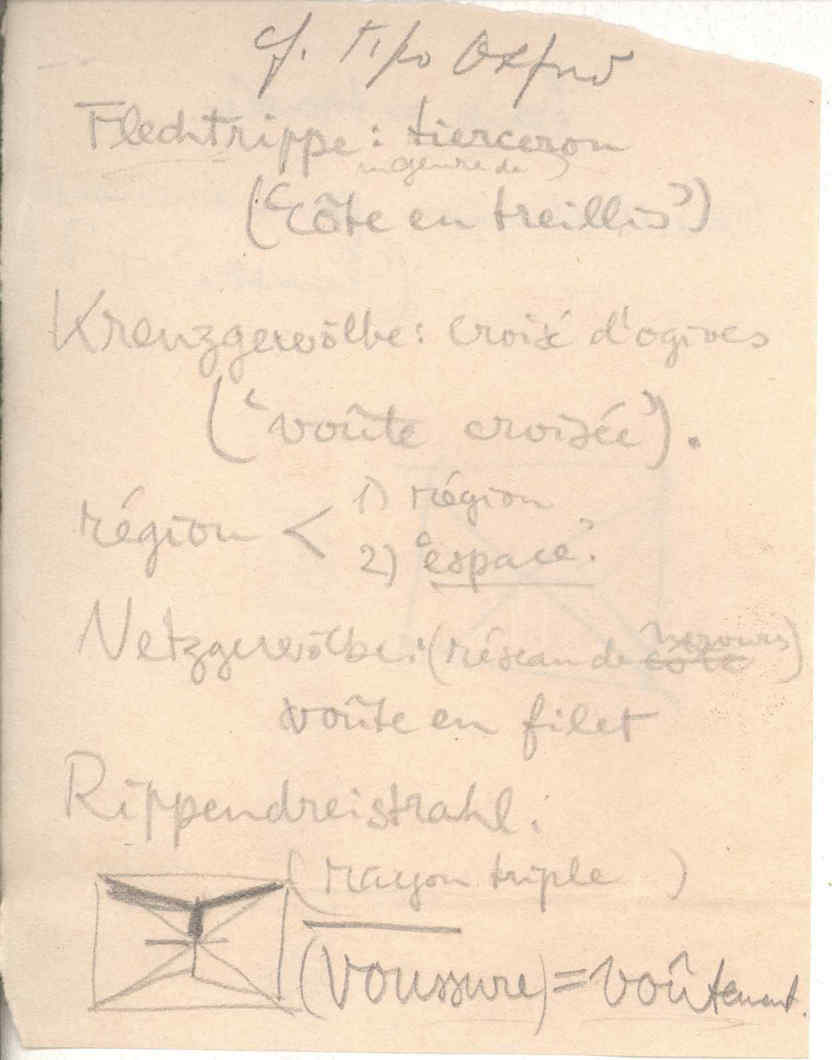 cf. tipo Oxford
Flechtrippe: tierceron
un genre de
("Côte en treillis")
Kreuzgewölbe: croisé d'ogives
("voûte croisée").
région < 1) région
2) "espace".
Netzgewölbe: (réseau de côte nervures)
voûte en filet
Rippendreistrahl.
(rayon triple)
(voussure) = voûtement.